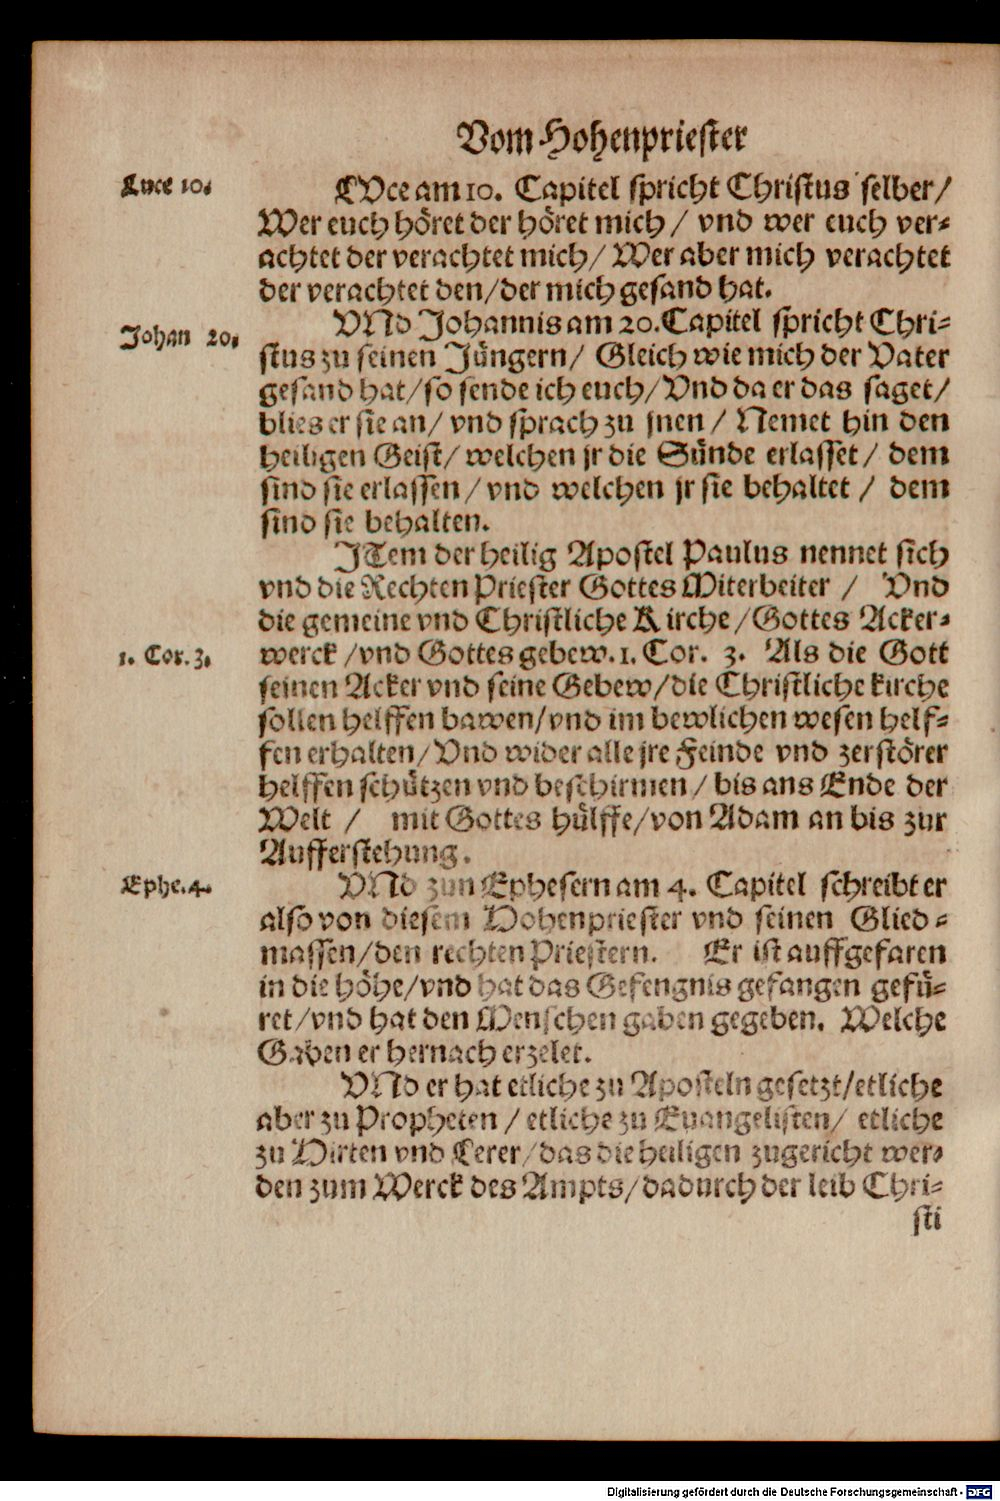 Vom Hohenpriester
Luce 10.
LVce am 10. Capitel spricht Christus selber/
Wer euch höret der höret mich / vnd wer euch ver-
achtet der verachtet mich/ Wer aber mich verachtet
der verachtet den/der mich gesand hat.
Johan 20.
VNd Johannis am 20. Capitel spricht Chri-
stus zu seinen Jüngern/ Gleich wie mich der Vater
gesand hat/so sende ich euch/Vnd da er das saget/
blies er sie an/ vnd sprach zu jnen / Nemet hin den
heiligen Geist/ welchen jr die Sünde erlasset/ dem
sind sie erlassen/ vnd welchen jr sie behaltet / dem
sind sie behalten.
JTem der heilig Apostel Paulus nennet sich
vnd die Rechten Priester Gottes Miterbeiter / Vnd
die gemeine vnd Christliche Kirche/Gottes Acker-
1. Cor. 3.
werck /vnd Gottes gebew. 1. Cor. 3. Als die Gott
seinen Acker vnd seine Gebew/die Christliche kirche
sollen helffen bawen/vnd im bewlichen wesen helf-
fen erhalten/Vnd wider alle jre Feinde vnd zerstörer
helffen schützen vnd beschirmen/ bis ans Ende der
Welt / mit Gottes hülffe/von Adam an bis zur
Aufferstehung.
Ephe. 4.
VNd zun Ephesern am 4. Capitel schreibt er
also von diesem Hohenpriester vnd seinen Glied-
massen/den rechten Priestern. Er ist auffgefaren
in die höhe/vnd hat das Gefengnis gefangen gefü-
ret/vnd hat den Menschen gaben gegeben. Welche
Gaben er hernach erzelet.
VNd er hat etliche zu Aposteln gesetzt/etliche
aber zu Propheten / etliche zu Euangelisten/ etliche
zu Hirten vnd Lerer/das die heiligen zugericht wer-
den zum Werck des Ampts/dadurch der leib Chri-
sti
Digitalisierung gefördert durch die Deutsche Forschungsgemeinschaft - DFG